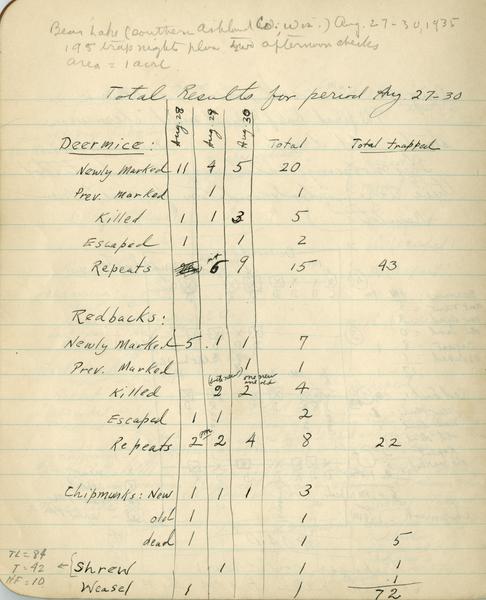 Bear Lake (southern Ashland Co. Wis.) Aug. 27-30, 1935
195 trap nights plus two afternoon checks
area = 1 acre
Total Results for period Aug 27-30
Aug. 28 Aug. 29 Aug 30
Deermice: Total Total trapped
Newly Marked 11 4 5 20
Prev. Marked 1 1
Killed 1 1 3 5
Escaped 1 1 2
Repeats 6 9 15 43
Redbacks:
Newly Marked 5 1 1 7
Prev. Marked 1 1
(both new) one new
Killed 2 2 4
Escaped 1 1 2
Repeats 2 2 4 8 22
Chipmunks: New 1 1 1 3
old 1 1
dead 1 1 5
TL = 84
T = 42 ← Shrew 1 1
HF = 10
Weasel 1 1 1
72